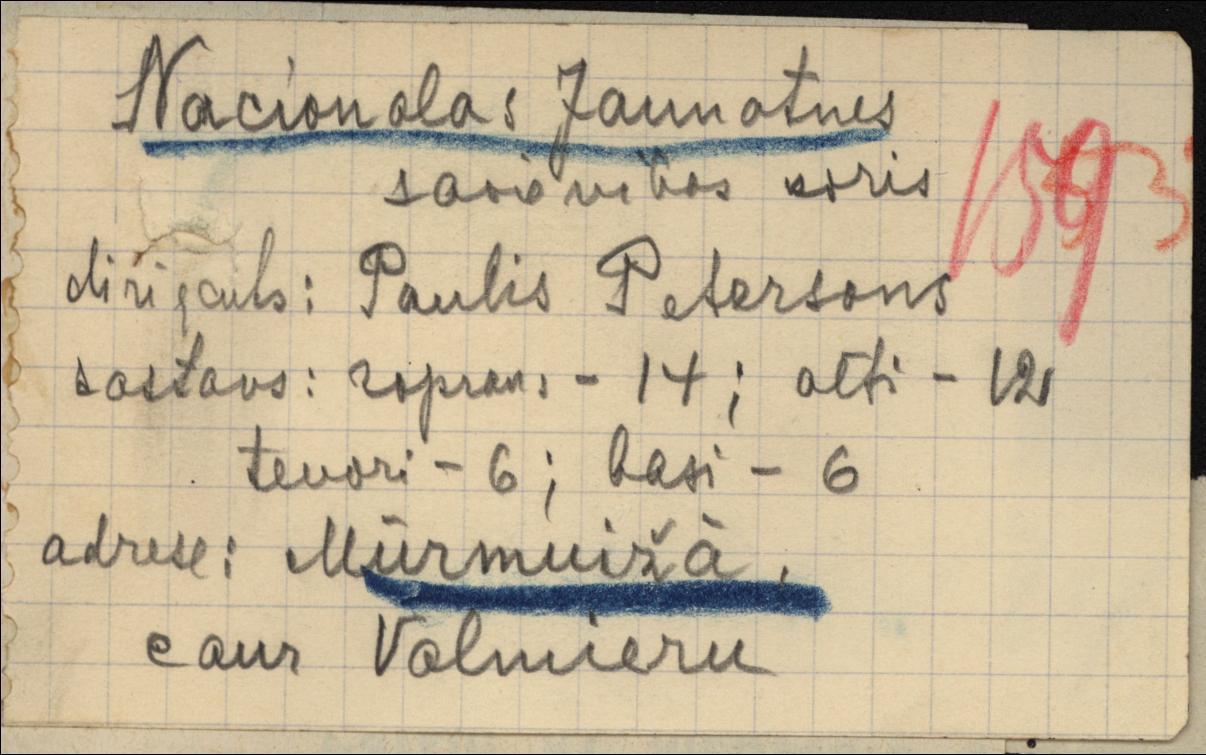 Nacionalas Jaunatnes
savienības koris
diriģents: Paulis Petersons
sastavs: sopran: - 14; alti - 12
tenori - 6; basi - 6
adrese: Mūrmuižā,
caur Valmieru
159